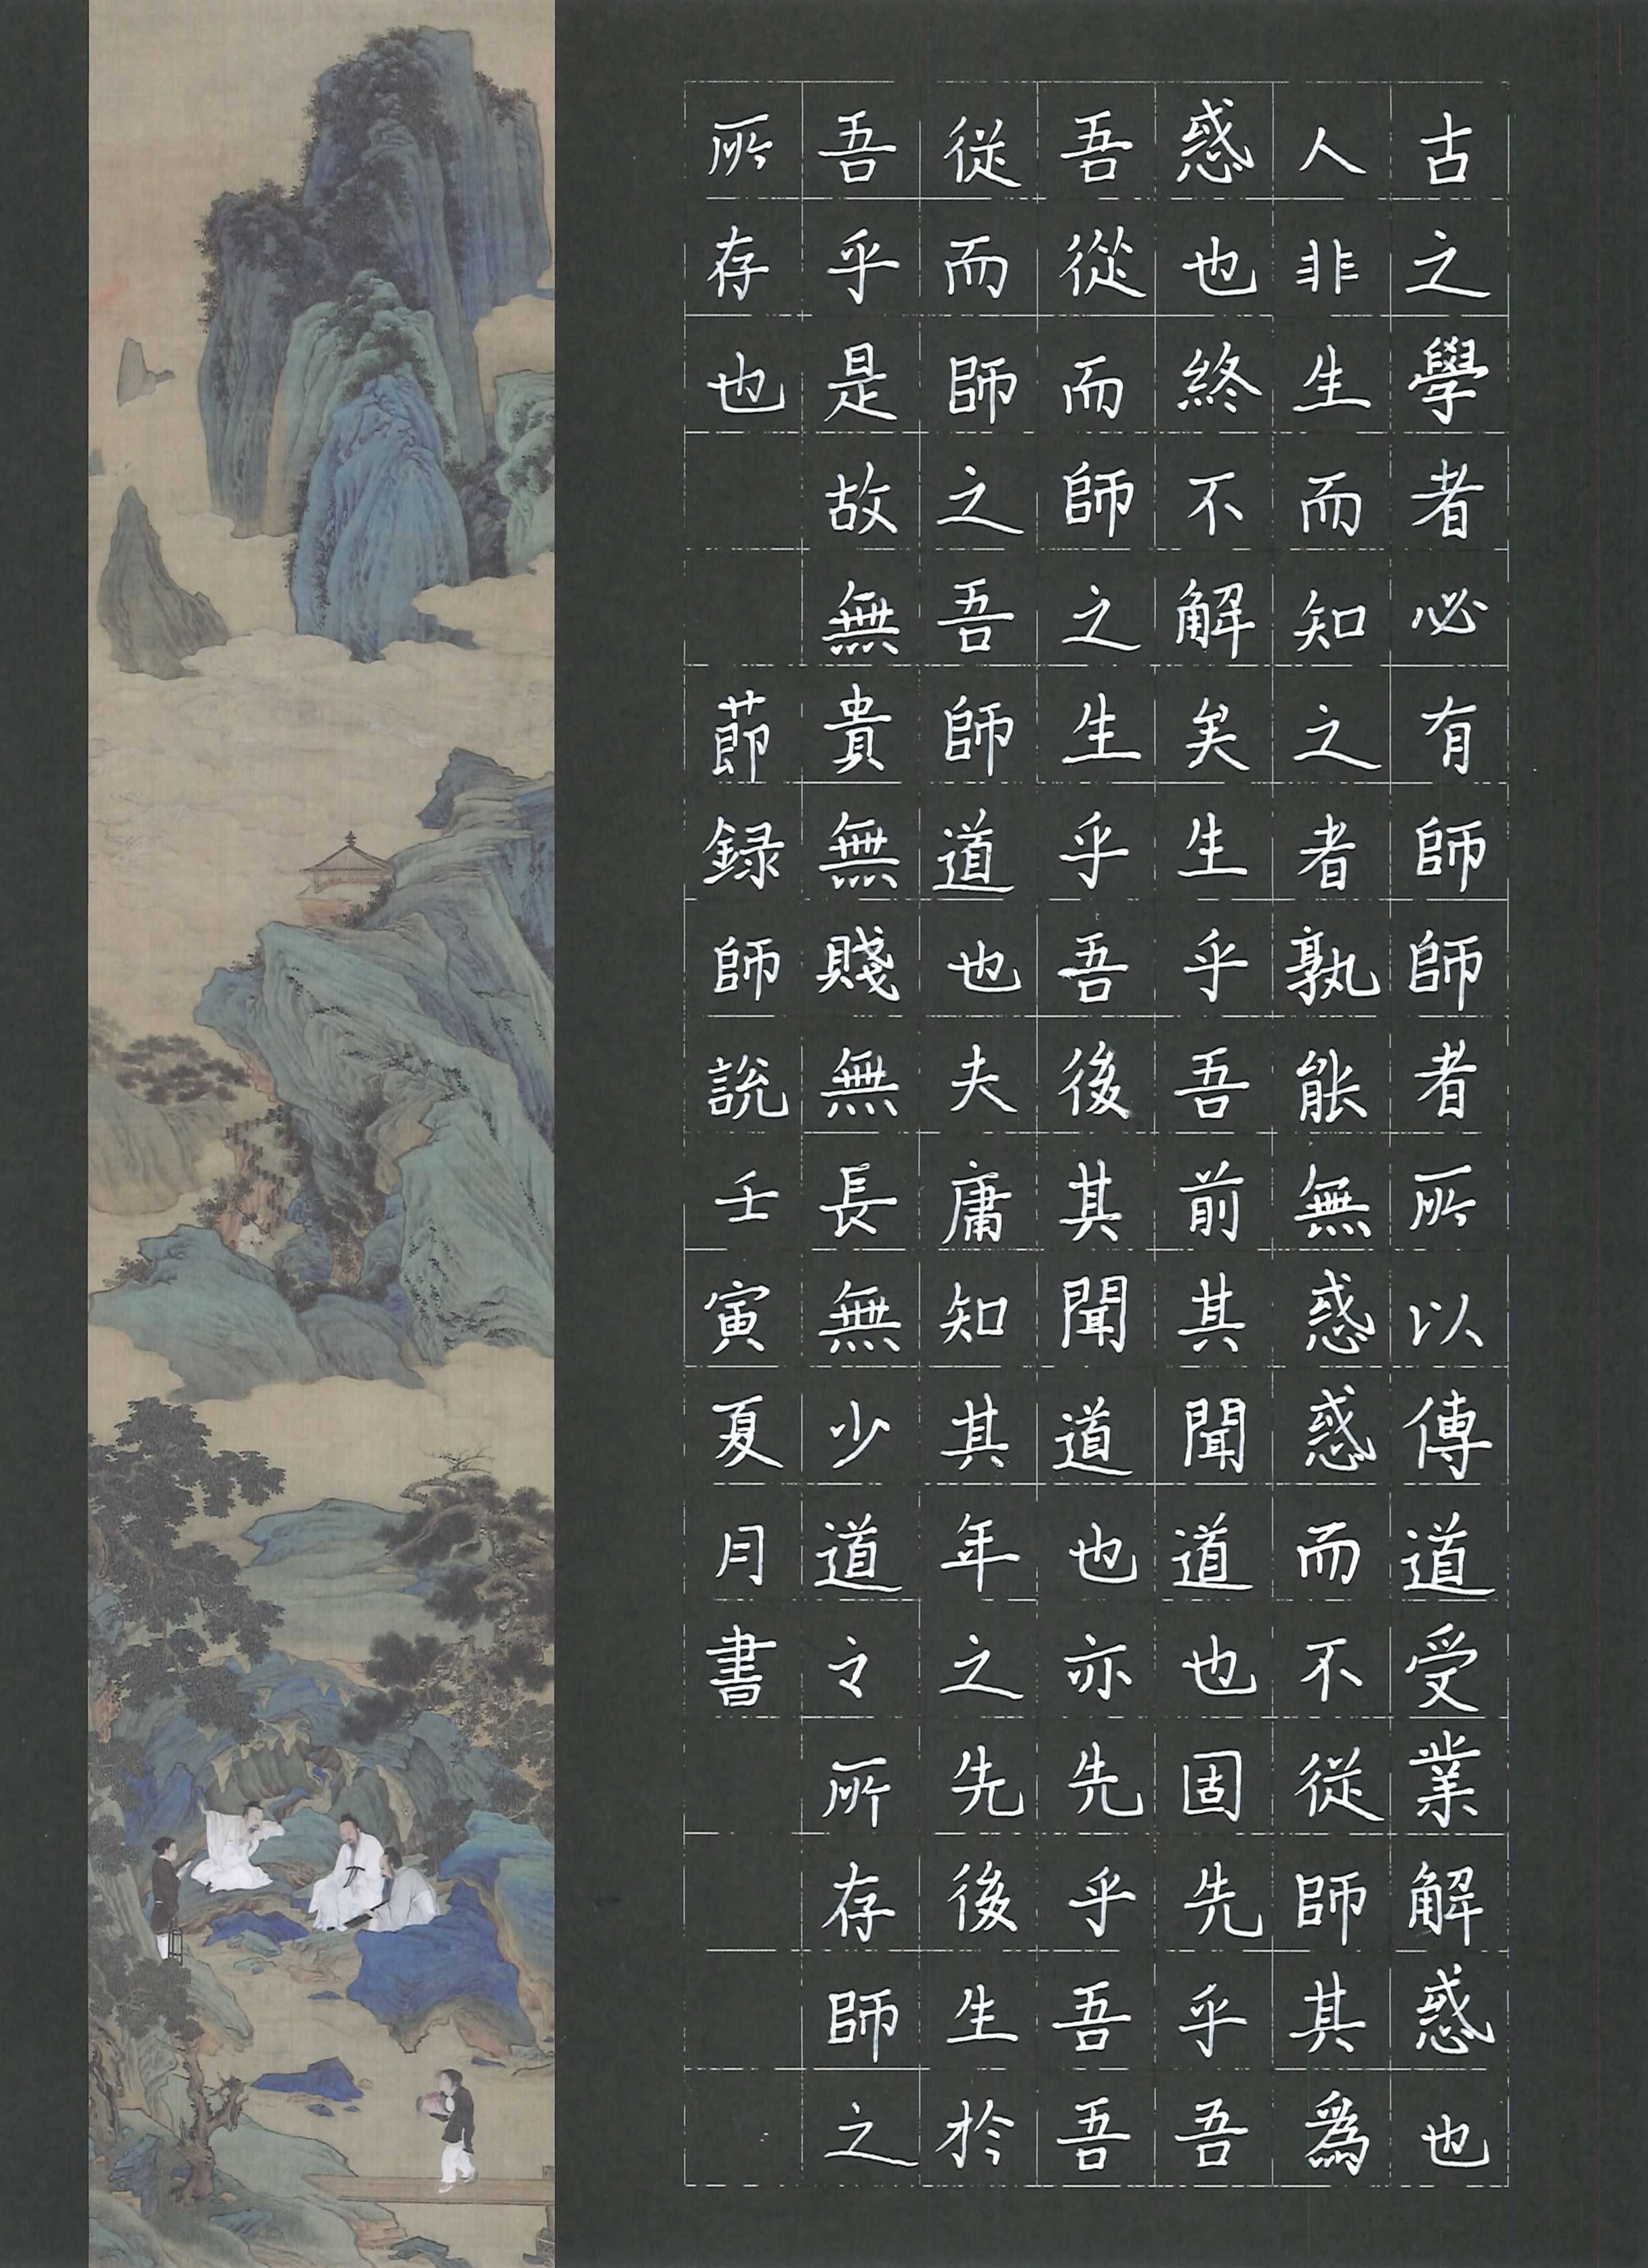 古之學者必有師師者所以傳道受業解惑也
人非生而知之者孰能無惑惑而不從師其為
惑也終不解矣生乎吾前其聞道也固先乎吾
吾從而師之生乎吾後其聞道也亦先乎吾吾
從而師之吾師道也夫庸知其年之先後生於
吾乎是故無貴無賤無長無少道々所存師之
所存也 節録師説壬寅夏月書